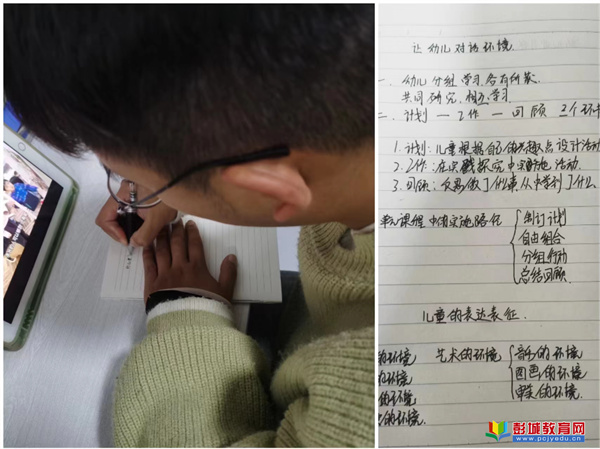 让幼儿对话环境
一、幼儿分组学习,各有所获
共同研究,相互学习
二、计划一工作一回顾 三个环节
1.计划:儿童根据自己的兴趣点设计活动
2.工作:在实践探究中实施活动
3.回顾:反思做了什么事,从中学到了什么
单元课程中的实施路径
制订计划
自由组合
分组行动
总结回顾
儿童的表达表征.
的环境 艺术的环境 音乐的环境
的环境 图画的环境
的环境 审美的环境
的环境.
彭城教育网
www.pcjyedu.cn